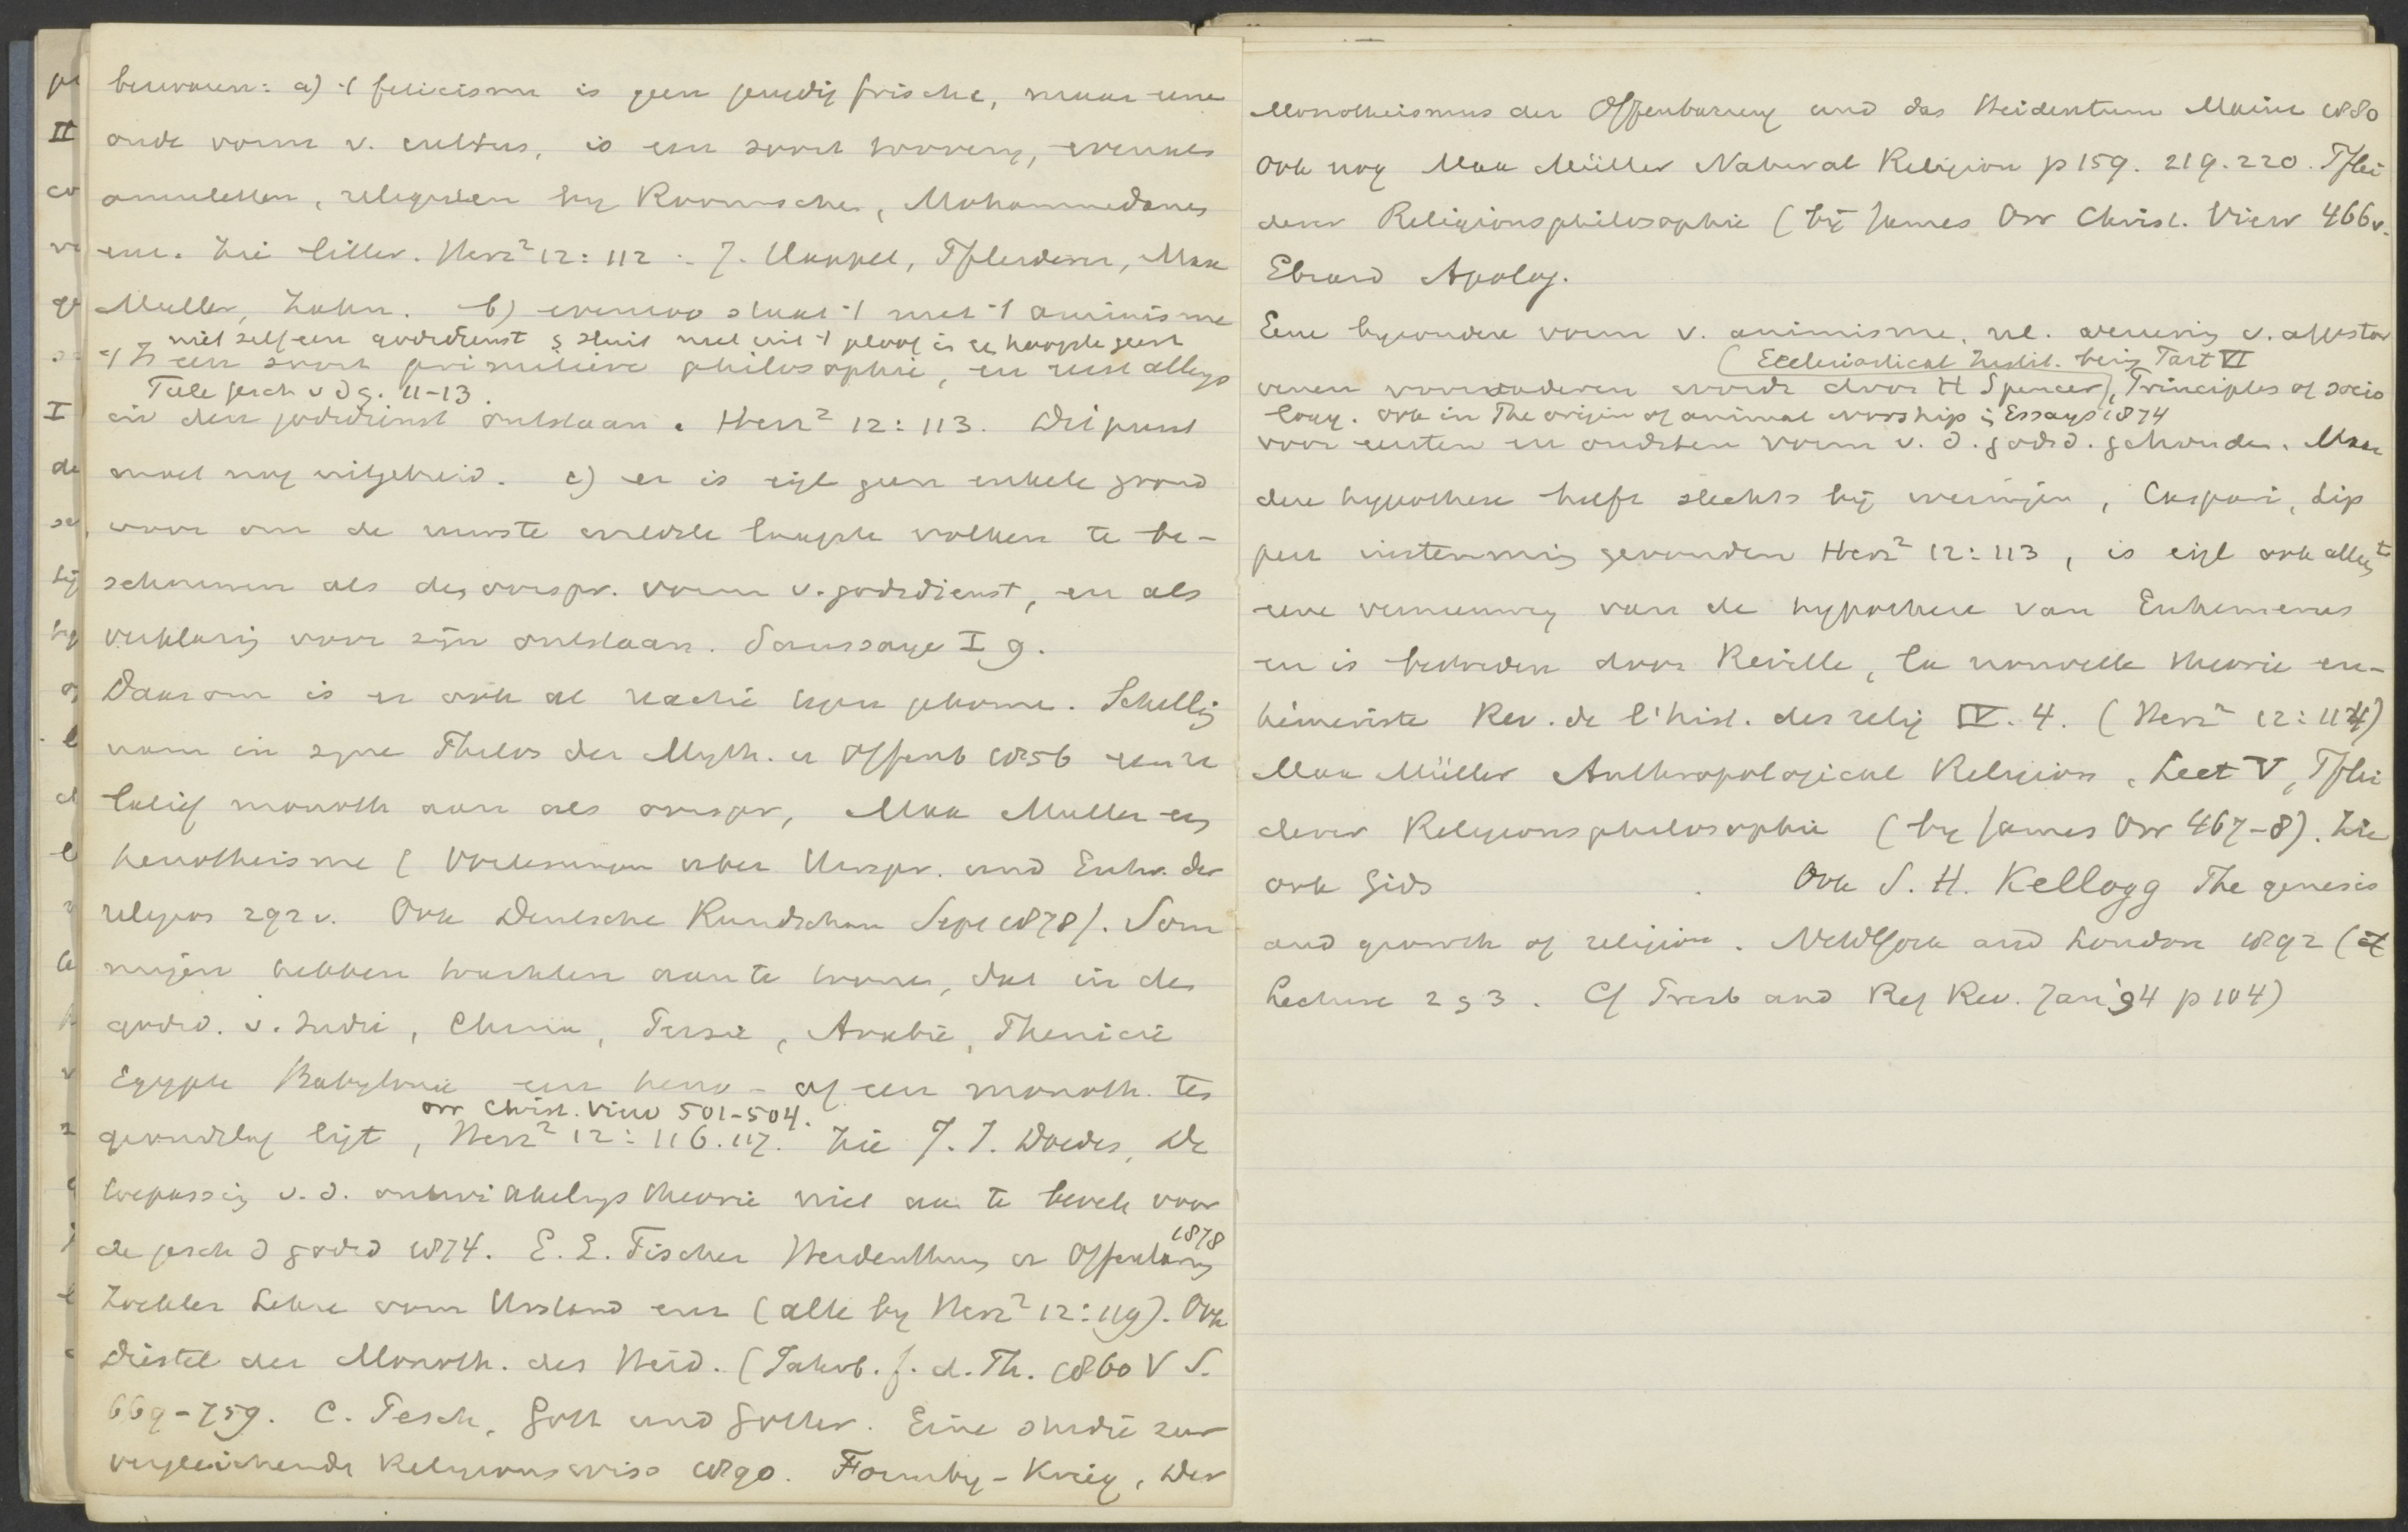 bezwaren: a) 't feticisme is geen jeugdig frissche, maar eene
oude vorm v. cultus, is een soort toovery, evenals
amuletten, religieten by Roomschen, Mohammedanen
enz. Zie litter. Herz² 12: 112 :. J. Happel, Pfleiderer, Max
Muller, Zahn. b) evenzoo staat 't met 't animisme
niet zelf een godsdienst & sluit niet uit 't geloof in een hoogste geest
't Is een soort primitieve philosophie, en niet alleen
Tiele Gesch v d g. 11-13.
in den godsdienst ontstaan. Herz² 12: 113. Dit punt
moet nog uitgebreid. c) er is eigl geen enkele grond
voor om de minste wilde laagste volken te be-
schouwen als de oorspr. vorm v. godsdienst, en als
verklaring voor zijn ontstaan. Saussaye I 9.
Daarom is er ook al reactie tegen gekomen. Schelling
nam in zyne Philos der Myth. u Offenb 1856 een re
latief monoth aan als oorspr, Max Muller een
henotheisme (Vorlesungen uber Urspr. und Entw. der
religion 292 v. Ook Deutsche Rundschau Sept 1878). Som
migen hebben trachten aan te toonen, dat in de
godsd. v. Indie, China, Persie, Arabie, Phenicie
Egypte Babylonie een heno- of een monoth. ten
Orr Christ. View 501-504.
grondslag ligt, Herz² 12: 116.117. Zie J. I. Doedes, De
toepassing v. d. ontwikkelingstheorie niet aan te bevelen voor
de gesch d godsd 1874. E. L. Fischer Heidenthum u Offenbarung 1878
Zockler Lehre vom Urstand enz (alle by Herz² 12: 119). Ook
Diestel der Monoth. des Heid. (Jahrb. f. d. Th. 1860 V S.
669-759. C. Pesch, Gott und Gotter. Eine studie zur
vergleichende Religionswiss 1890. Formby-Krieg, Der
Monotheismus der Offenbarung und das Heidentum Mainz 1880
Ook nog Max Müller Natural Religion p 159. 219. 220. Pflei
derer Religionsphilosophie (bij James Orr Christ. View 466 v.
Ebrard Apolog.
Eene byzondere vorm v. animisme, nl. vereering v. afgestor
(Ecclesiastical Instit. being Part VI
venen voorouderen wordt door H Spencer), Principles of socio
logy. ook in The origin of animal worship in Essays 1874
voor eersten en oudsten vorm v. d. godsd. gehouden. Maar
deze hypothese heeft slechts bij weinigen, Caspari, Lip
pert instemming gevonden Herz² 12: 113, is eigl ook alleen
eene vernieuwing van de hypothese van Euhemerus
en is bestreden door Reville, la nouvelle theorie eu-
hémériste Rev. de l'hist. des relig IV. 4. (Herz² 12: 114)
Max Müller Anthropological Religion, Lect V, Pflei
derer Religionsphilosophie (by James Orr 467-8). Zie
ook Gids . Ook S. H. Kellogg The genesis
and growth of religion. NewYork and London 1892 (
Lecture 2 & 3. Cf Presb and Ref Rev. Jan '94 p 104)